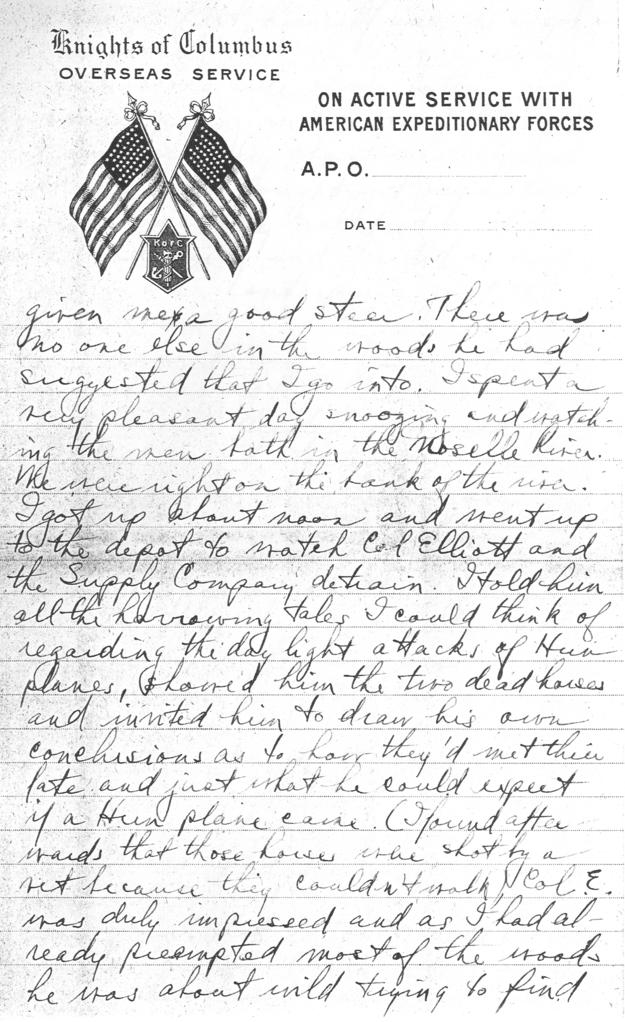 Knights of Columbus
OVERSEAS SERVICE
ON ACTIVE SERVICE WITH
AMERICAN EXPEDITIONARY FORCES
A.P.O.
DATE
K of C
given me a good steer. There was
no one else in the woods he had
suggested that I go into. I spent a
very pleasant day snoozing and watch-
ing the men bath in the Moselle River.
We were right on the bank of the river.
I got up about noon and went up
to the depot to watch Col Elliott and
the Supply Company detrain. I told him
all the harrowing tales I could think of
regarding the day light attacks of Hun
planes, showed him the two dead horses
and invited him to draw his own
conclusions as to how they'd met their
fate and just what he could expect
if a Hun plane came. (I found after-
wards that those horses were shot by a
vet because they couldn't walk) Col. E.
was duly impressed and as I had al-
ready preempted most of the woods
he was about wild trying to find